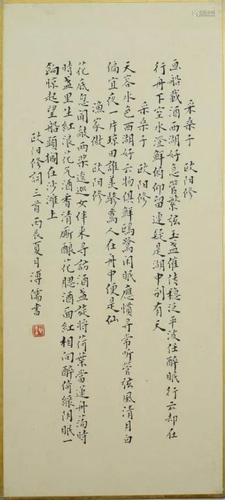 采桑子 欧阳修
画船载酒西湖好急管繁弦玉盏催传稳泛平波任醉眠行云却在
行舟下空水澄鲜俯仰留连疑是湖中别有天
采桑子 欧阳修
天容水色西湖好云物俱鲜鸥鹭闲眠应惯寻常听管弦风清月白
偏宜夜一片琼田谁羡骖鸾人在舟中便是仙
渔家傲 欧阳修
花底忽闻敲两桨逡巡女伴来寻访酒盏旋将荷叶当莲舟荡时
时盏里生红浪花气酒香清厮酿花腮酒面红相向醉倚绿阴眠一
饷惊起望船头搁在沙滩上
欧阳修词三首丙辰夏月溥儒书